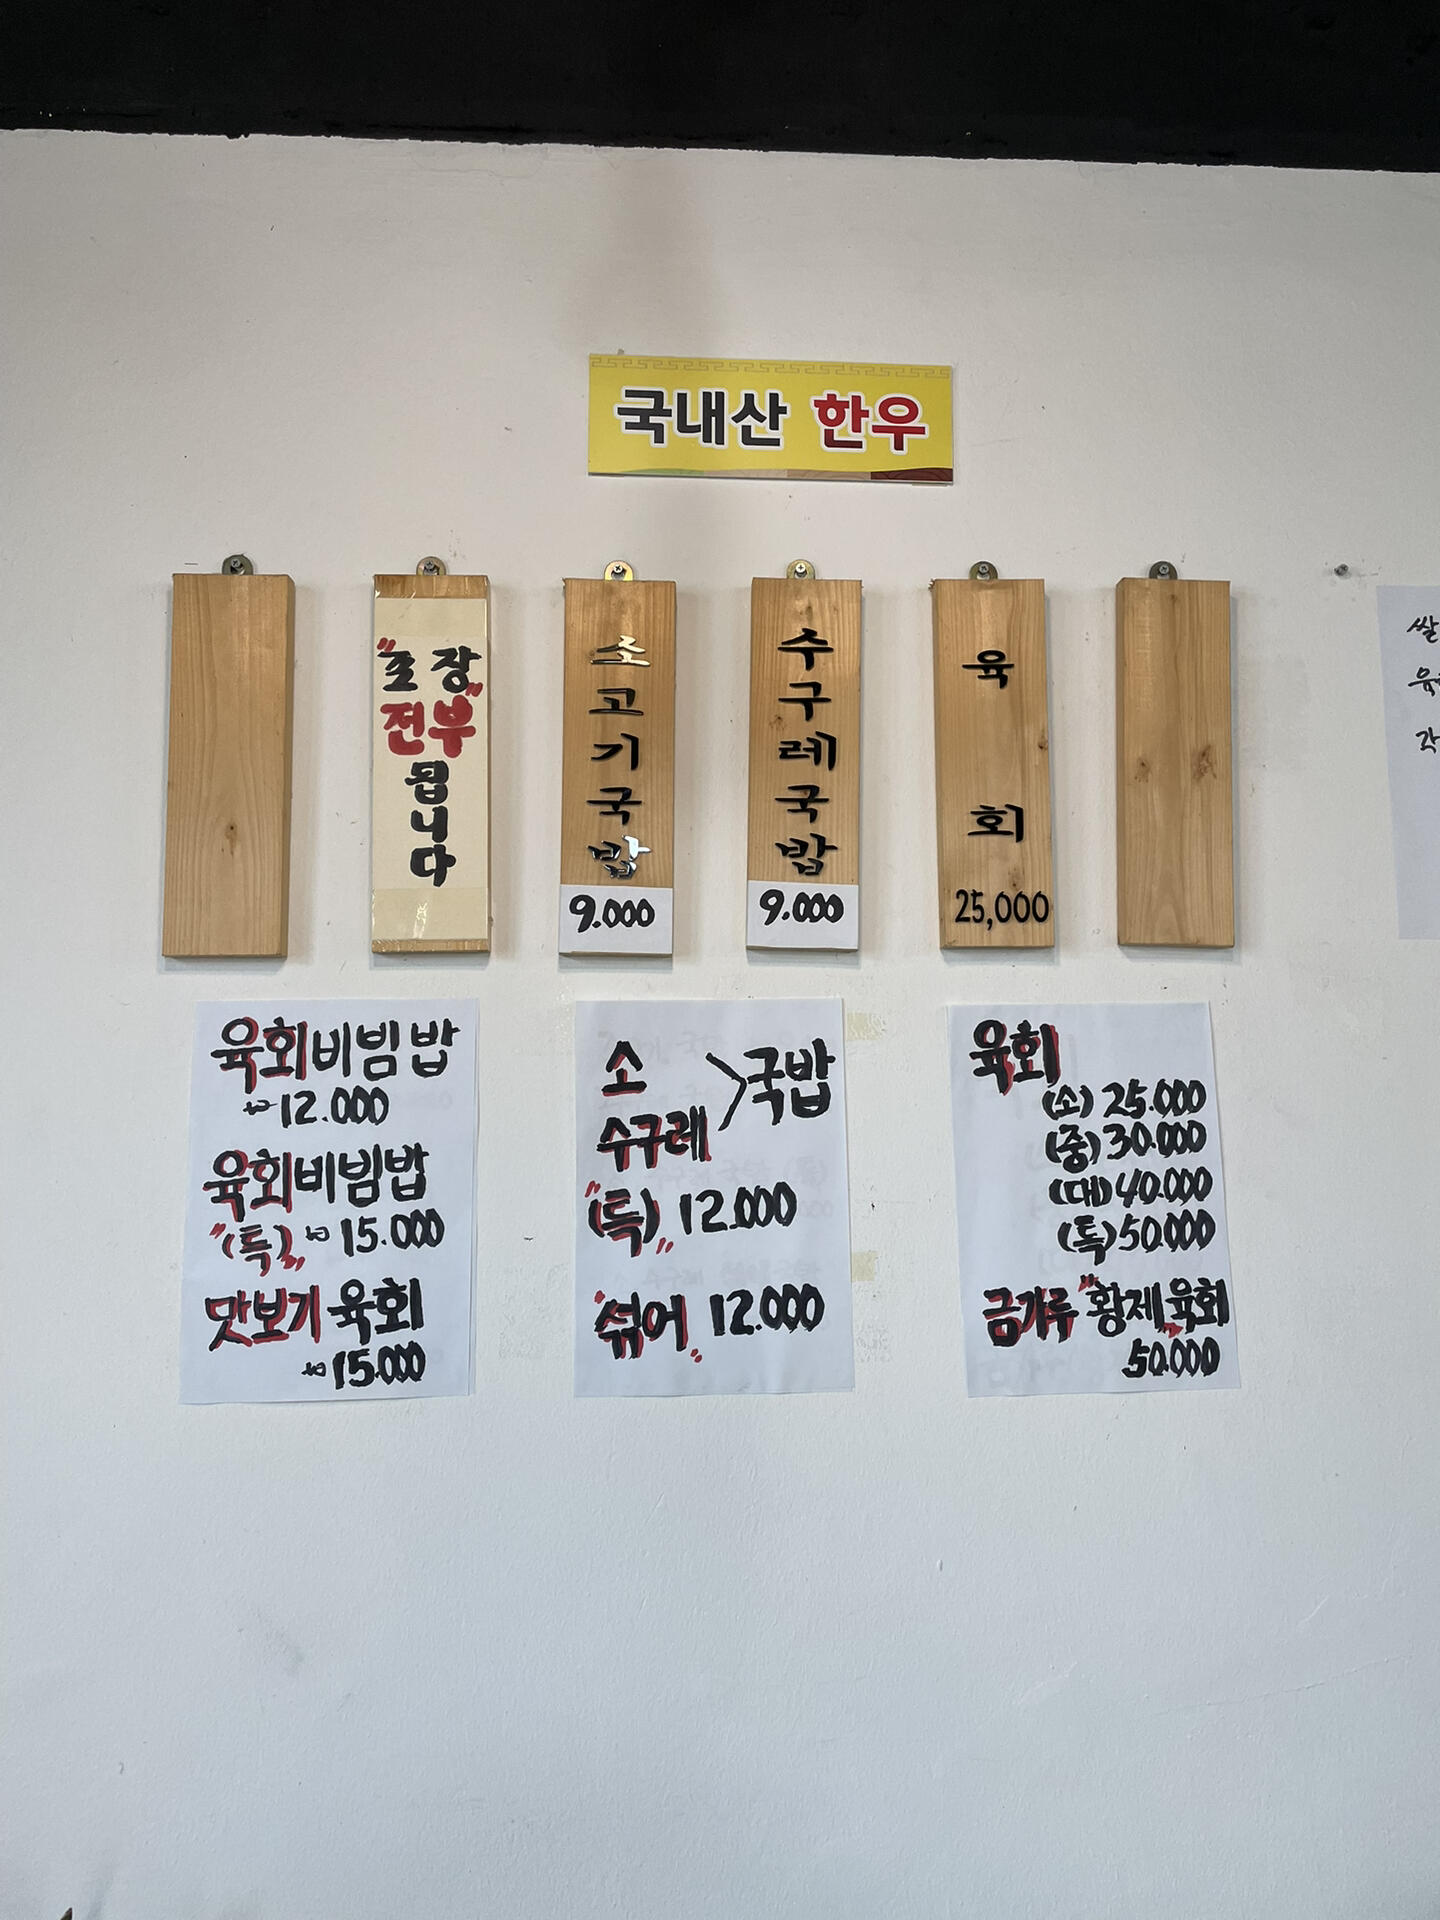 국내산 한우
"포장"
전부
됩니다
소고기국밥
9.000
수구레국밥
9.000
육회
25,000
육회비빔밥
₩12.000
육회비빔밥
"(특)" ₩15.000
맛보기 육회
₩15.000
소 > 국밥
수구레
"(특)" 12.000
"섞어" 12.000
육회
(소) 25.000
(중) 30.000
(대) 40.000
(특) 50.000
금가루 "황제" 육회
50.000
쌀
각